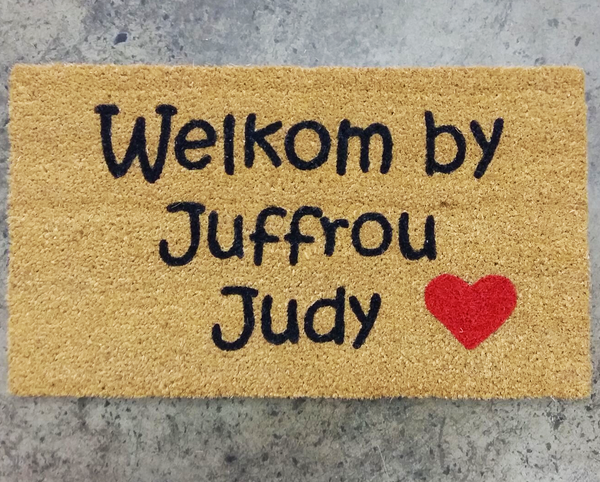 Welkom by
Juffrou
Judy